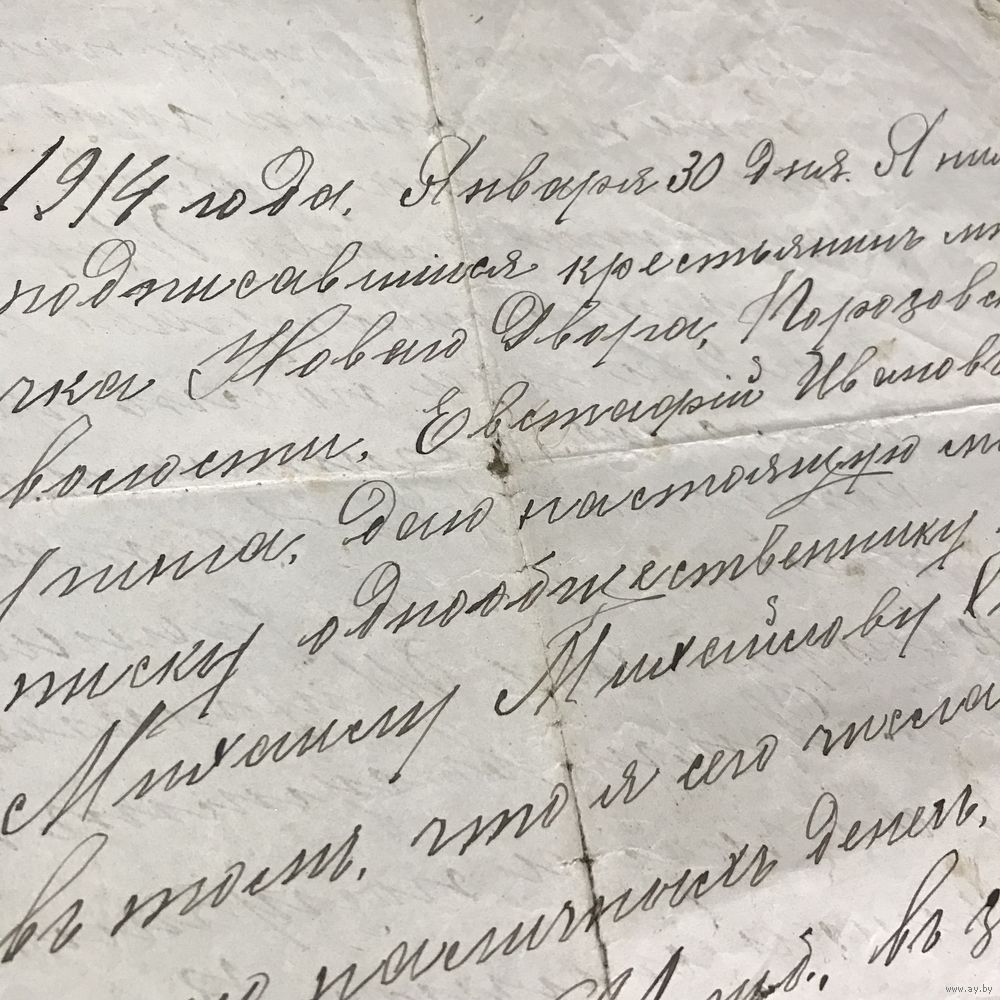 1914 года. Января 30 дня. Я ни
подписавшийся крестьянинъ мѣ
чка Новаго Двора, Порозовс
волости, Евстафій Ивановъ
даю настоящую
писку однообщественнику
Михаилу Михайлову
въ томъ, что я сего числа
наличныхъ денегъ,
въ з
www.ay.by